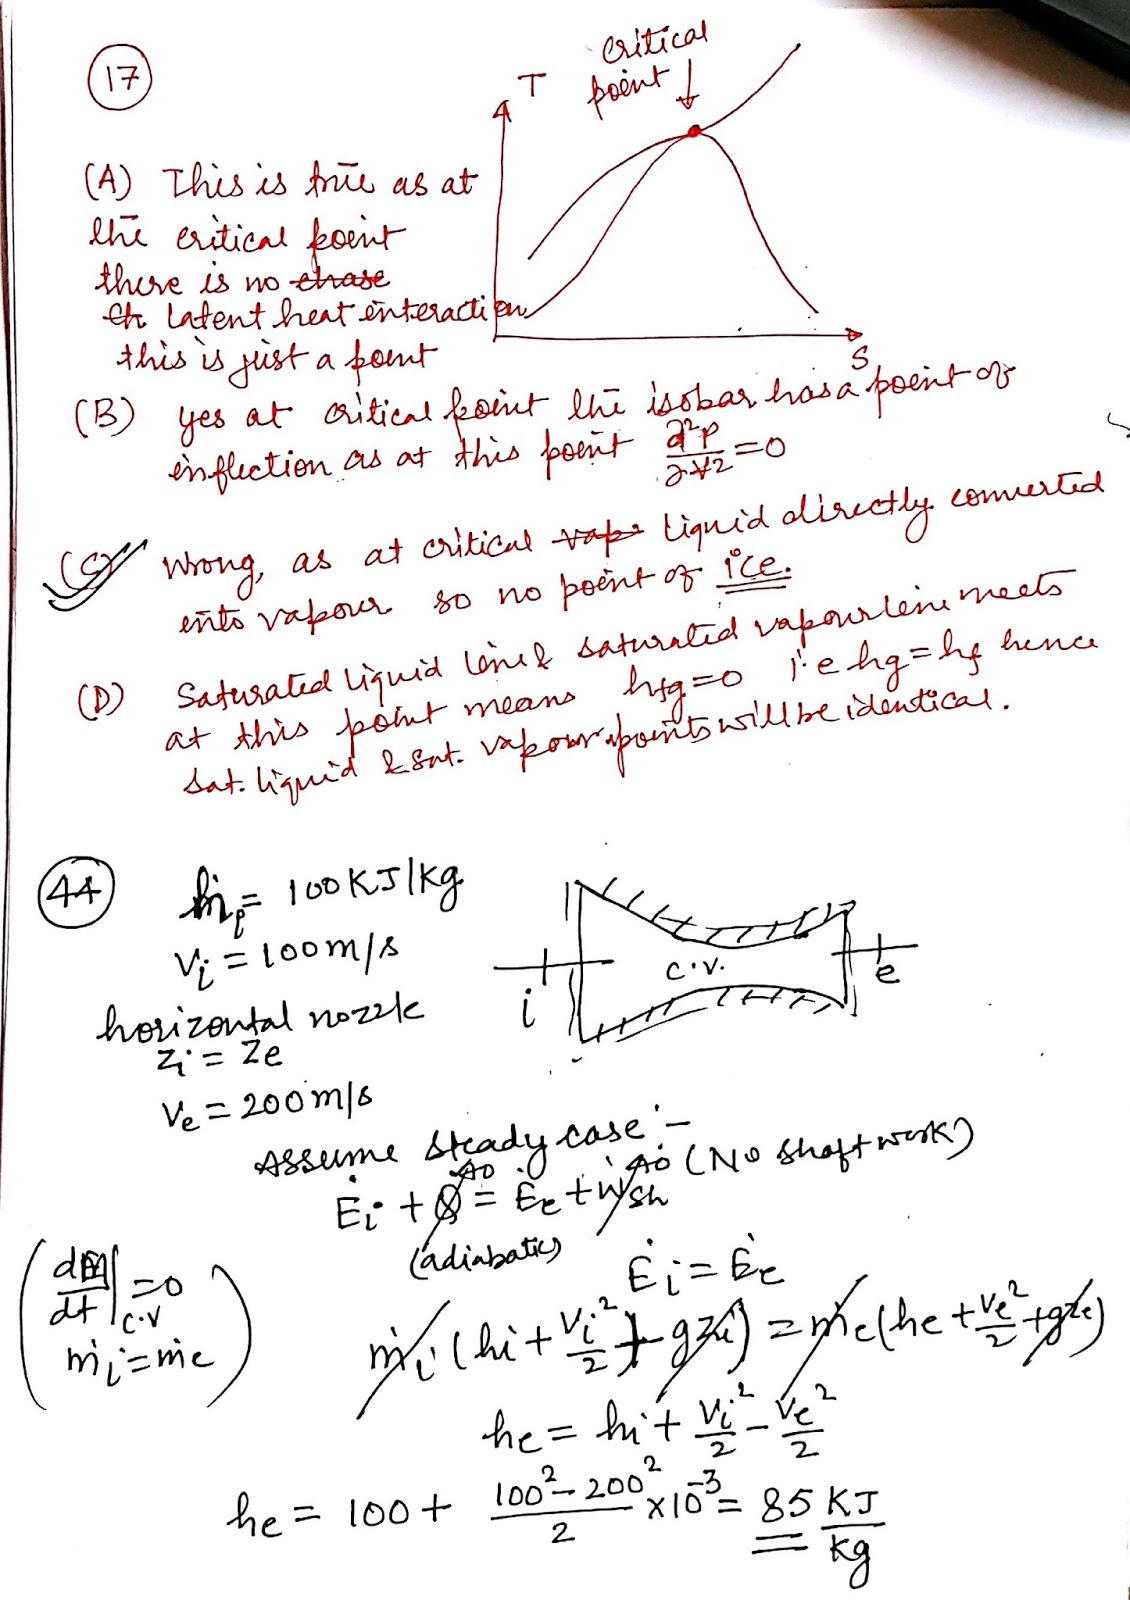 17
critical
point
T
(A) This is true as at
the critical point
there is no chase
Ch Latent heat interaction
this is just a point
S
(B) yes at critical point the isobar has a point of
inflection as at this point ∂²P/∂V² = 0
(C) Wrong, as at critical vape liquid directly converted
into vapour so no point of ice.
(D) Saturated liquid line & saturated vapour line meets
at this point means hfg = 0 i.e hg = hf hence
sat. liquid & sat. vapour points will be identical.
44
hi = 100 KJ/kg
Vi = 100 m/s
horizontal nozzle
Zi = Ze
Ve = 200 m/s
i
C.V.
e
Assume steady case :-
Ėi + Q̇ = Ėe + Ẇsh (No shaft work)
0
0
(adiabatic)
Ėi = Ėe
(dE/dt|C.V = 0
ṁi = ṁe)
ṁi (hi + Vi²/2 + gZi) = ṁe (he + Ve²/2 + gZe)
he = hi + Vi²/2 - Ve²/2
he = 100 + (100² - 200²)/2 × 10⁻³ = 85 KJ/kg